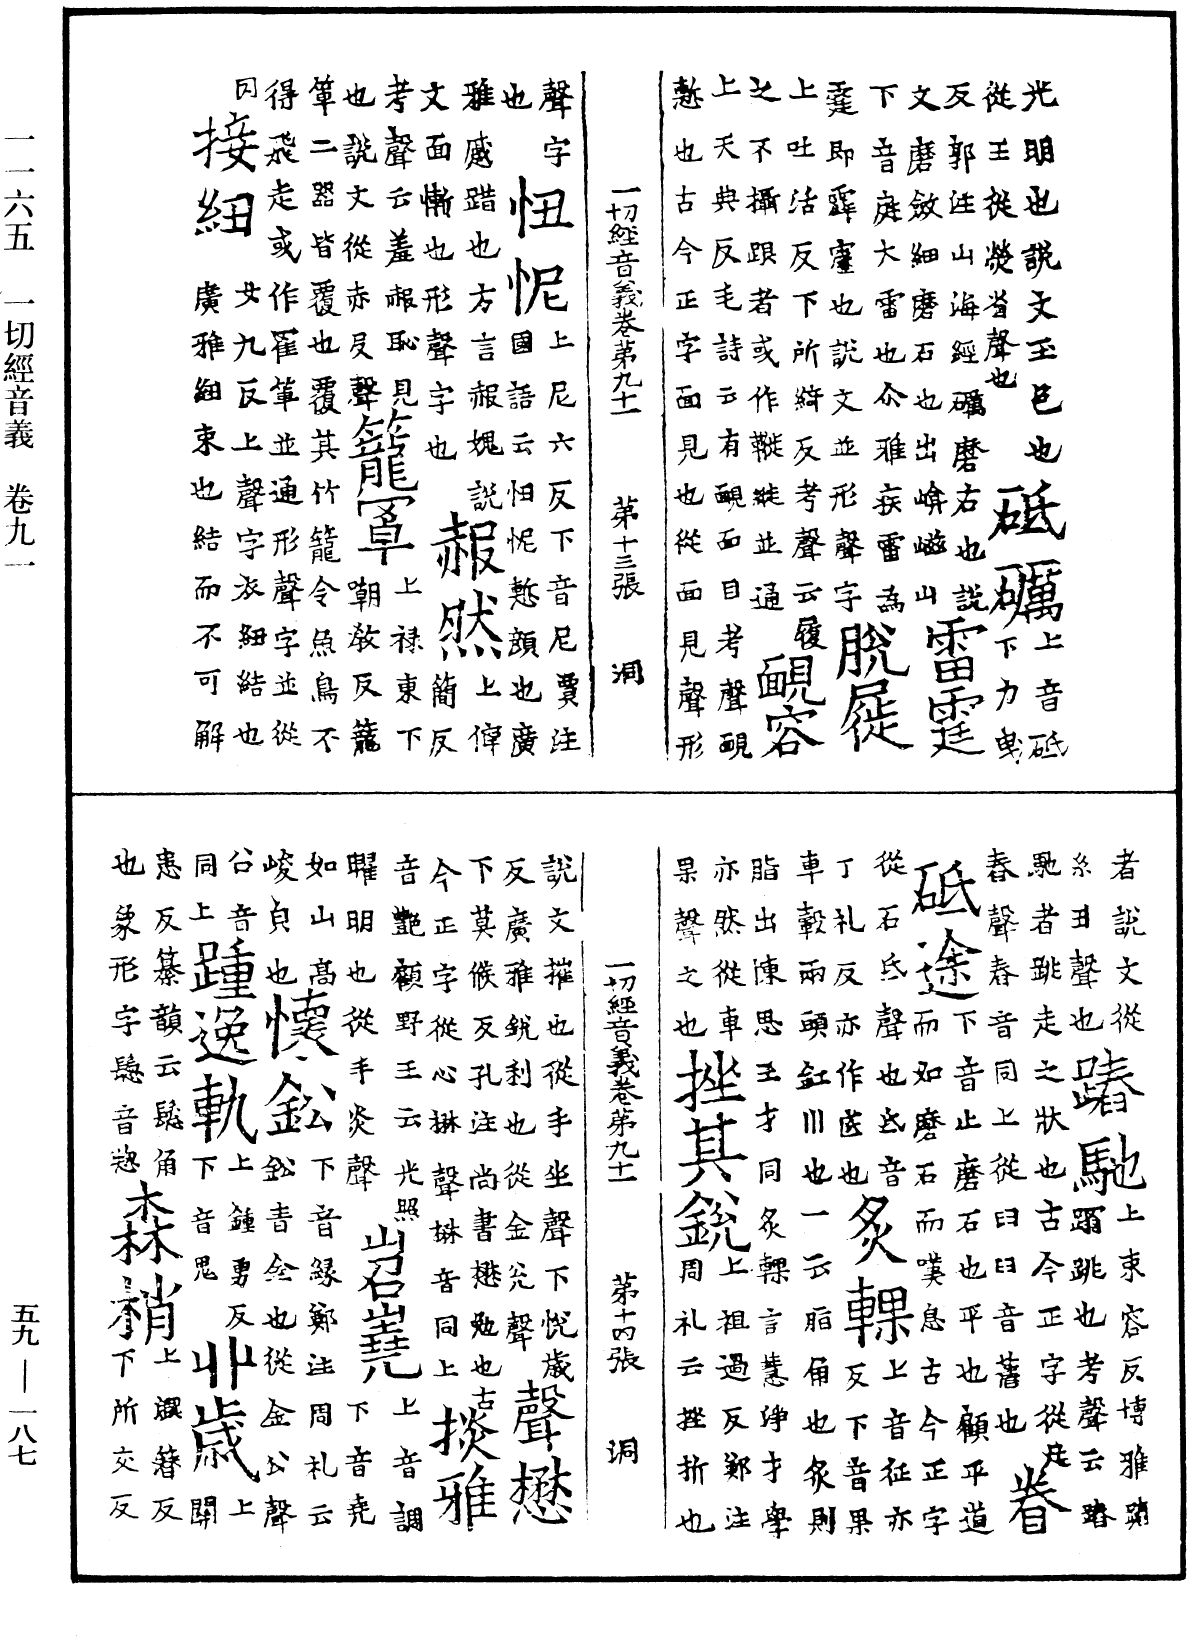 光明也說文玉色也砥礪上音砥
從王從熒省聲也礪下力曳
反郭注山海經礪磨石也說
文磨斂細磨石也出崦嵫山雷霆
下音庭大雷也介雅疾雷為
霆即霹靂也說文並形聲字脫屣
上吐活反下所綺反考聲云履
之不攝跟者或作鞁縰並通靦容
上天典反毛詩云有靦面目考聲靦
慙也古今正字面見也從面見聲形
一切經音義卷第九十一 第十三張 洞
聲字忸怩上尼六反下音尼賈注
也國語云忸怩慙顏也廣
雅慼踖也方言赧媿說赧然上儜簡反
文面慚也形聲字也
考聲云羞赧恥見上祿東下
也說文從赤𠬝聲籠罩嘲教反籠
箪二器皆覆也覆其竹籠令魚鳥不
得飛走或作䍜箄並通形聲字並從
𦉪接紐女九反上聲字衣紐結也
廣雅細束也結而不可解
者說文從
糸丑聲也踳馳上束容反博雅踳
馳者跳走之狀也踳跳也考聲云踳
舂聲舂音同上從臼臼音舊也古今正字從足眷
砥途下音止磨石也平也顧平道
而如磨石而嘆息古今正字
從石氐聲也氐音上音征亦
丁礼反亦作厎也炙輠反下音果
車轂兩頭釭川也一云脂角也炙則
脂出陳思王才同炙輠言慧淨才學
亦然從車上祖過反鄭注
果聲之也挫其銳周礼云挫折也
一切經音義卷第九十一 第十四張 洞
說文摧也從手坐聲下悅歲
反廣雅銳利也從金兊聲聲懋
下莫候反孔注尚書懋勉也古
今正字從心楙聲楙音同上掞雅
音艷顧野王云光照上音調
曜明也從手炎聲岧嶤下音堯
如山高下音緣鄭注周礼云
峻貞也懷鈆鈆青金也從金公聲
公音上鍾勇反上
同上踵逸軌下音鬼丱歲關
患反纂韻云髻角上潩簪反
也象形字髻音森梢下所交反
一一六五 一切經音義 卷九一
五九—一八七